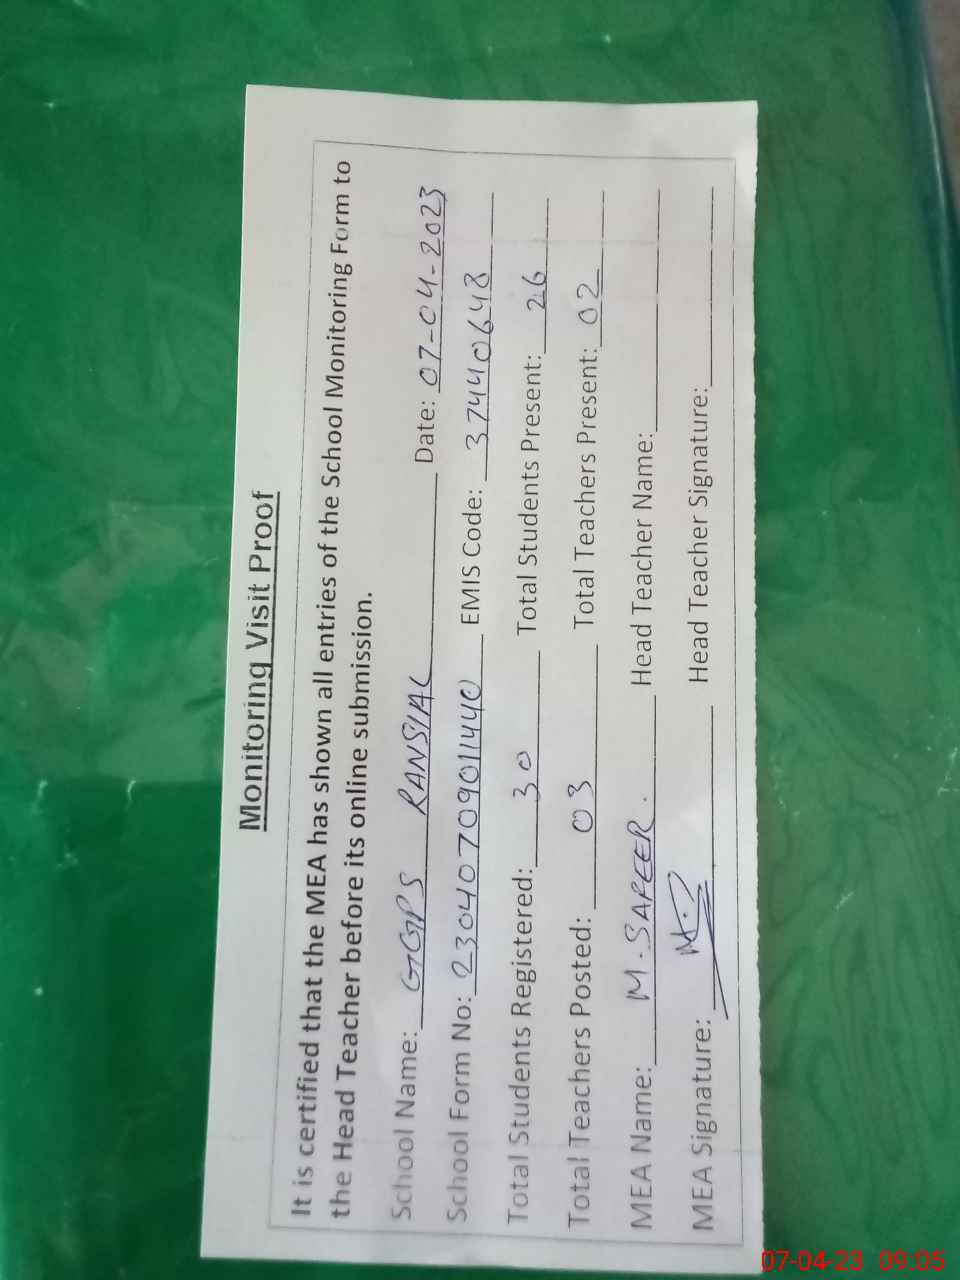 Monitoring Visit Proof
It is certified that the MEA has shown all entries of the School Monitoring Form to
the Head Teacher before its online submission.
School Name: GGPS RANSIAL Date: 07-04-2023
School Form No: 23040709011440 EMIS Code: 37440648
Total Students Registered: 30 Total Students Present: 26
Total Teachers Posted: 03 Total Teachers Present: 02
MEA Name: M. SAFEER. Head Teacher Name:
MEA Signature: Head Teacher Signature:
07-04-23 09:05